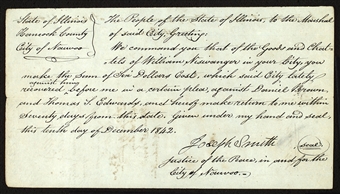 State of Illinois
Hancock County
City of Nauvoo
The People of the State of Illinois, to the Marshal
of said City, Greeting:
We command you that of the Goods and Chat-
tels of William Niswanger in your City, you
make the sum of Six Dollars Cost, which said City lately
recovered against him before me in a certain plea, against Daniel Brown,
and Thomas S. Edwards, and hereof make return to me within
Seventy days from this date. Given under my hand and seal,
this tenth day of December 1842.
Joseph Smith (seal)
Justice of the Peace, in and for the
City of Nauvoo.